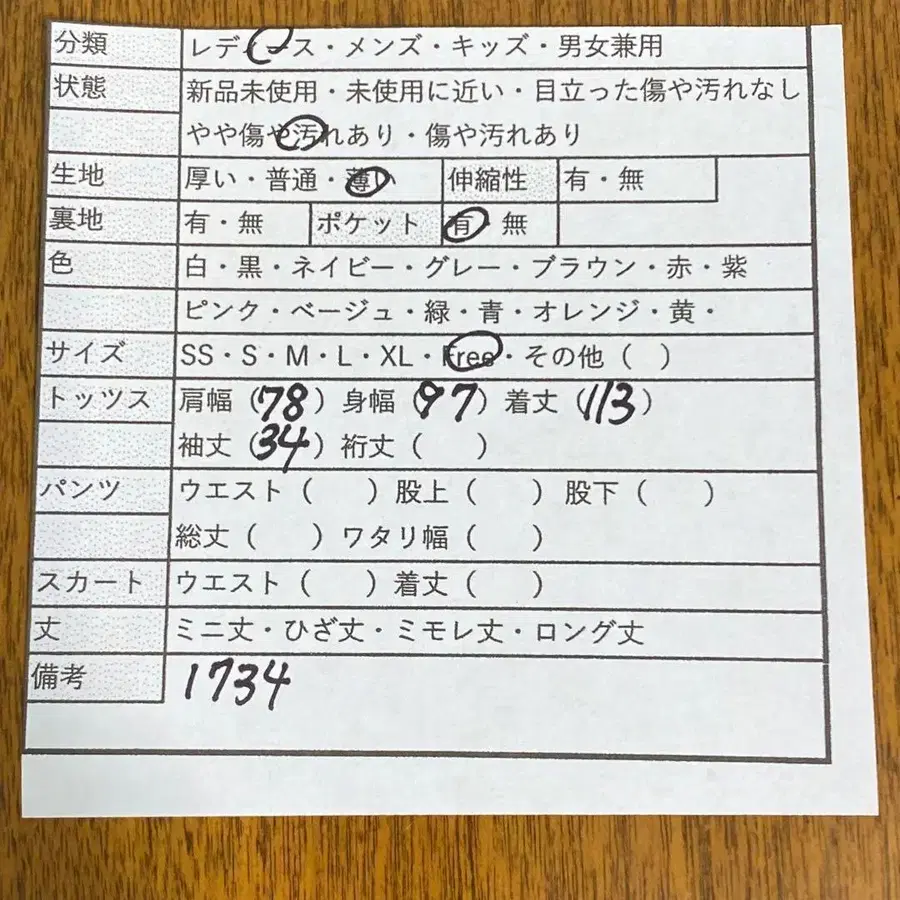 分類 レディース・メンズ・キッズ・男女兼用
状態 新品未使用・未使用に近い・目立った傷や汚れなし
やや傷や汚れあり・傷や汚れあり
生地 厚い・普通・薄い 伸縮性 有・無
裏地 有・無 ポケット 有・無
色 白・黒・ネイビー・グレー・ブラウン・赤・紫
ピンク・ベージュ・緑・青・オレンジ・黄・
サイズ SS・S・M・L・XL・Free・その他（ ）
トッツス 肩幅（78）身幅（97）着丈（113）
袖丈（34）裄丈（ ）
パンツ ウエスト（ ）股上（ ）股下（ ）
総丈（ ）ワタリ幅（ ）
スカート ウエスト（ ）着丈（ ）
丈 ミニ丈・ひざ丈・ミモレ丈・ロング丈
備考 1734